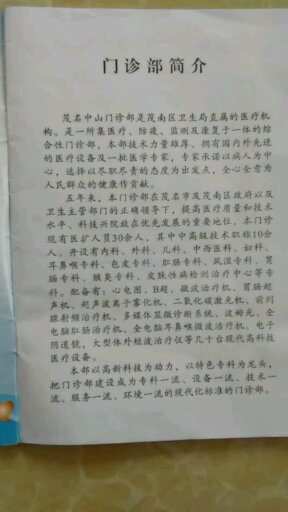 门诊部简介
茂名中山门诊部是茂南区卫生局直属的医疗机
构。是一所集医疗、防疫、监测及康复于一体的综
合性门诊部，本部技术力量雄厚，拥有国内外先进
的医疗设备及一批医学专家，专家承诺以病人为中
心，选择以尽职尽责的态度为出发点，全心全意为
人民群众的健康作贡献。
五年来，本门诊部在茂名市及茂南区政府以及
卫生主管部门的正确领导下，提高医疗质量和技术
水平，科技兴院放在优先发展的重要地位，本门诊
现有医护人员30余人，其中中高级技术职称10余
人。开设有内科、外科、儿科、中西医科、妇科、
耳鼻喉专科、色皮专科、肛肠专科、风湿专科、胃
肠专科、腋臭专科、皮肤性病检测治疗中心等专
科。配备有：心电图、B超、微波治疗机、胃肠超
声机、超声波离子雾化机、二氧化碳激光机、前列
腺射频治疗机、多媒体显微诊断系统、波姆光、全
电脑肛肠治疗机、全电脑耳鼻喉微波治疗机、电子
阴道镜、大型体外短波治疗仪等几十台现代高科技
医疗设备。
本部以高新科技为动力，以特色专科为龙头，
把门诊部建设成为专科一流、设备一流、技术一
流、服务一流、环境一流的现代化标准的门诊部。